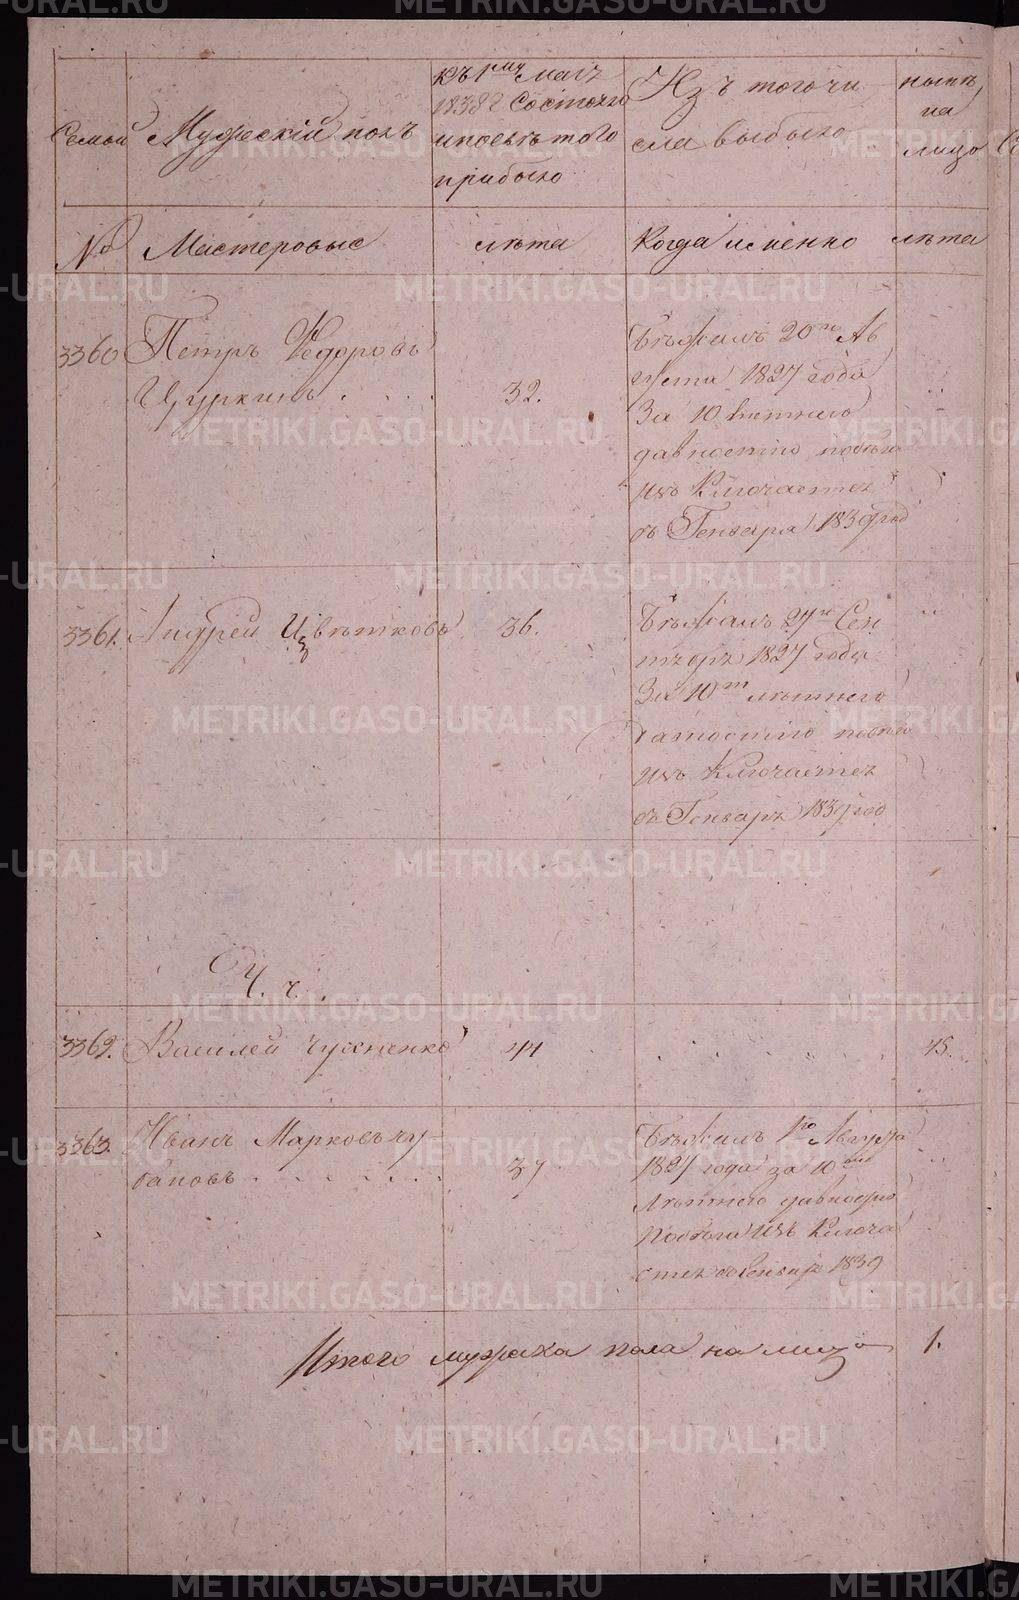 Семьи
Мужескій полъ
Къ 1му Маія
1838 Состояло
и послѣ того
прибыло
Изъ того чи
сла выбыло
нынѣ
на
лицо
№
Мастеровые
лѣта
Когда именно
лѣта
3360
Петръ Ѳедоровъ
Цуркинъ . . . .
32.
Бѣжалъ 20го Ав
густа 1827 года
За 10 лѣтнею
давностію побѣга
изъ Ключается
въ Генваря 1839 год
3361.
Андрей Цвѣтковъ
36.
Бѣжалъ 27го Сен
тября 1827 года
За 10ти лѣтнею
давностію побѣга
изъ Ключается
въ Генваря 1839 год
Ч. ч.
3362.
Василей
44
45.
3363.
Иванъ Марковъ чу
бановъ . . . . . .
37
Бѣжалъ 1го Августа
1827 года за 10ти
лѣтнею давностію
Побѣга изъ Ключа
ется въ Генваря 1839
Итого мужеска пола на лицо
1.
METRIKI.GASO-URAL.RU